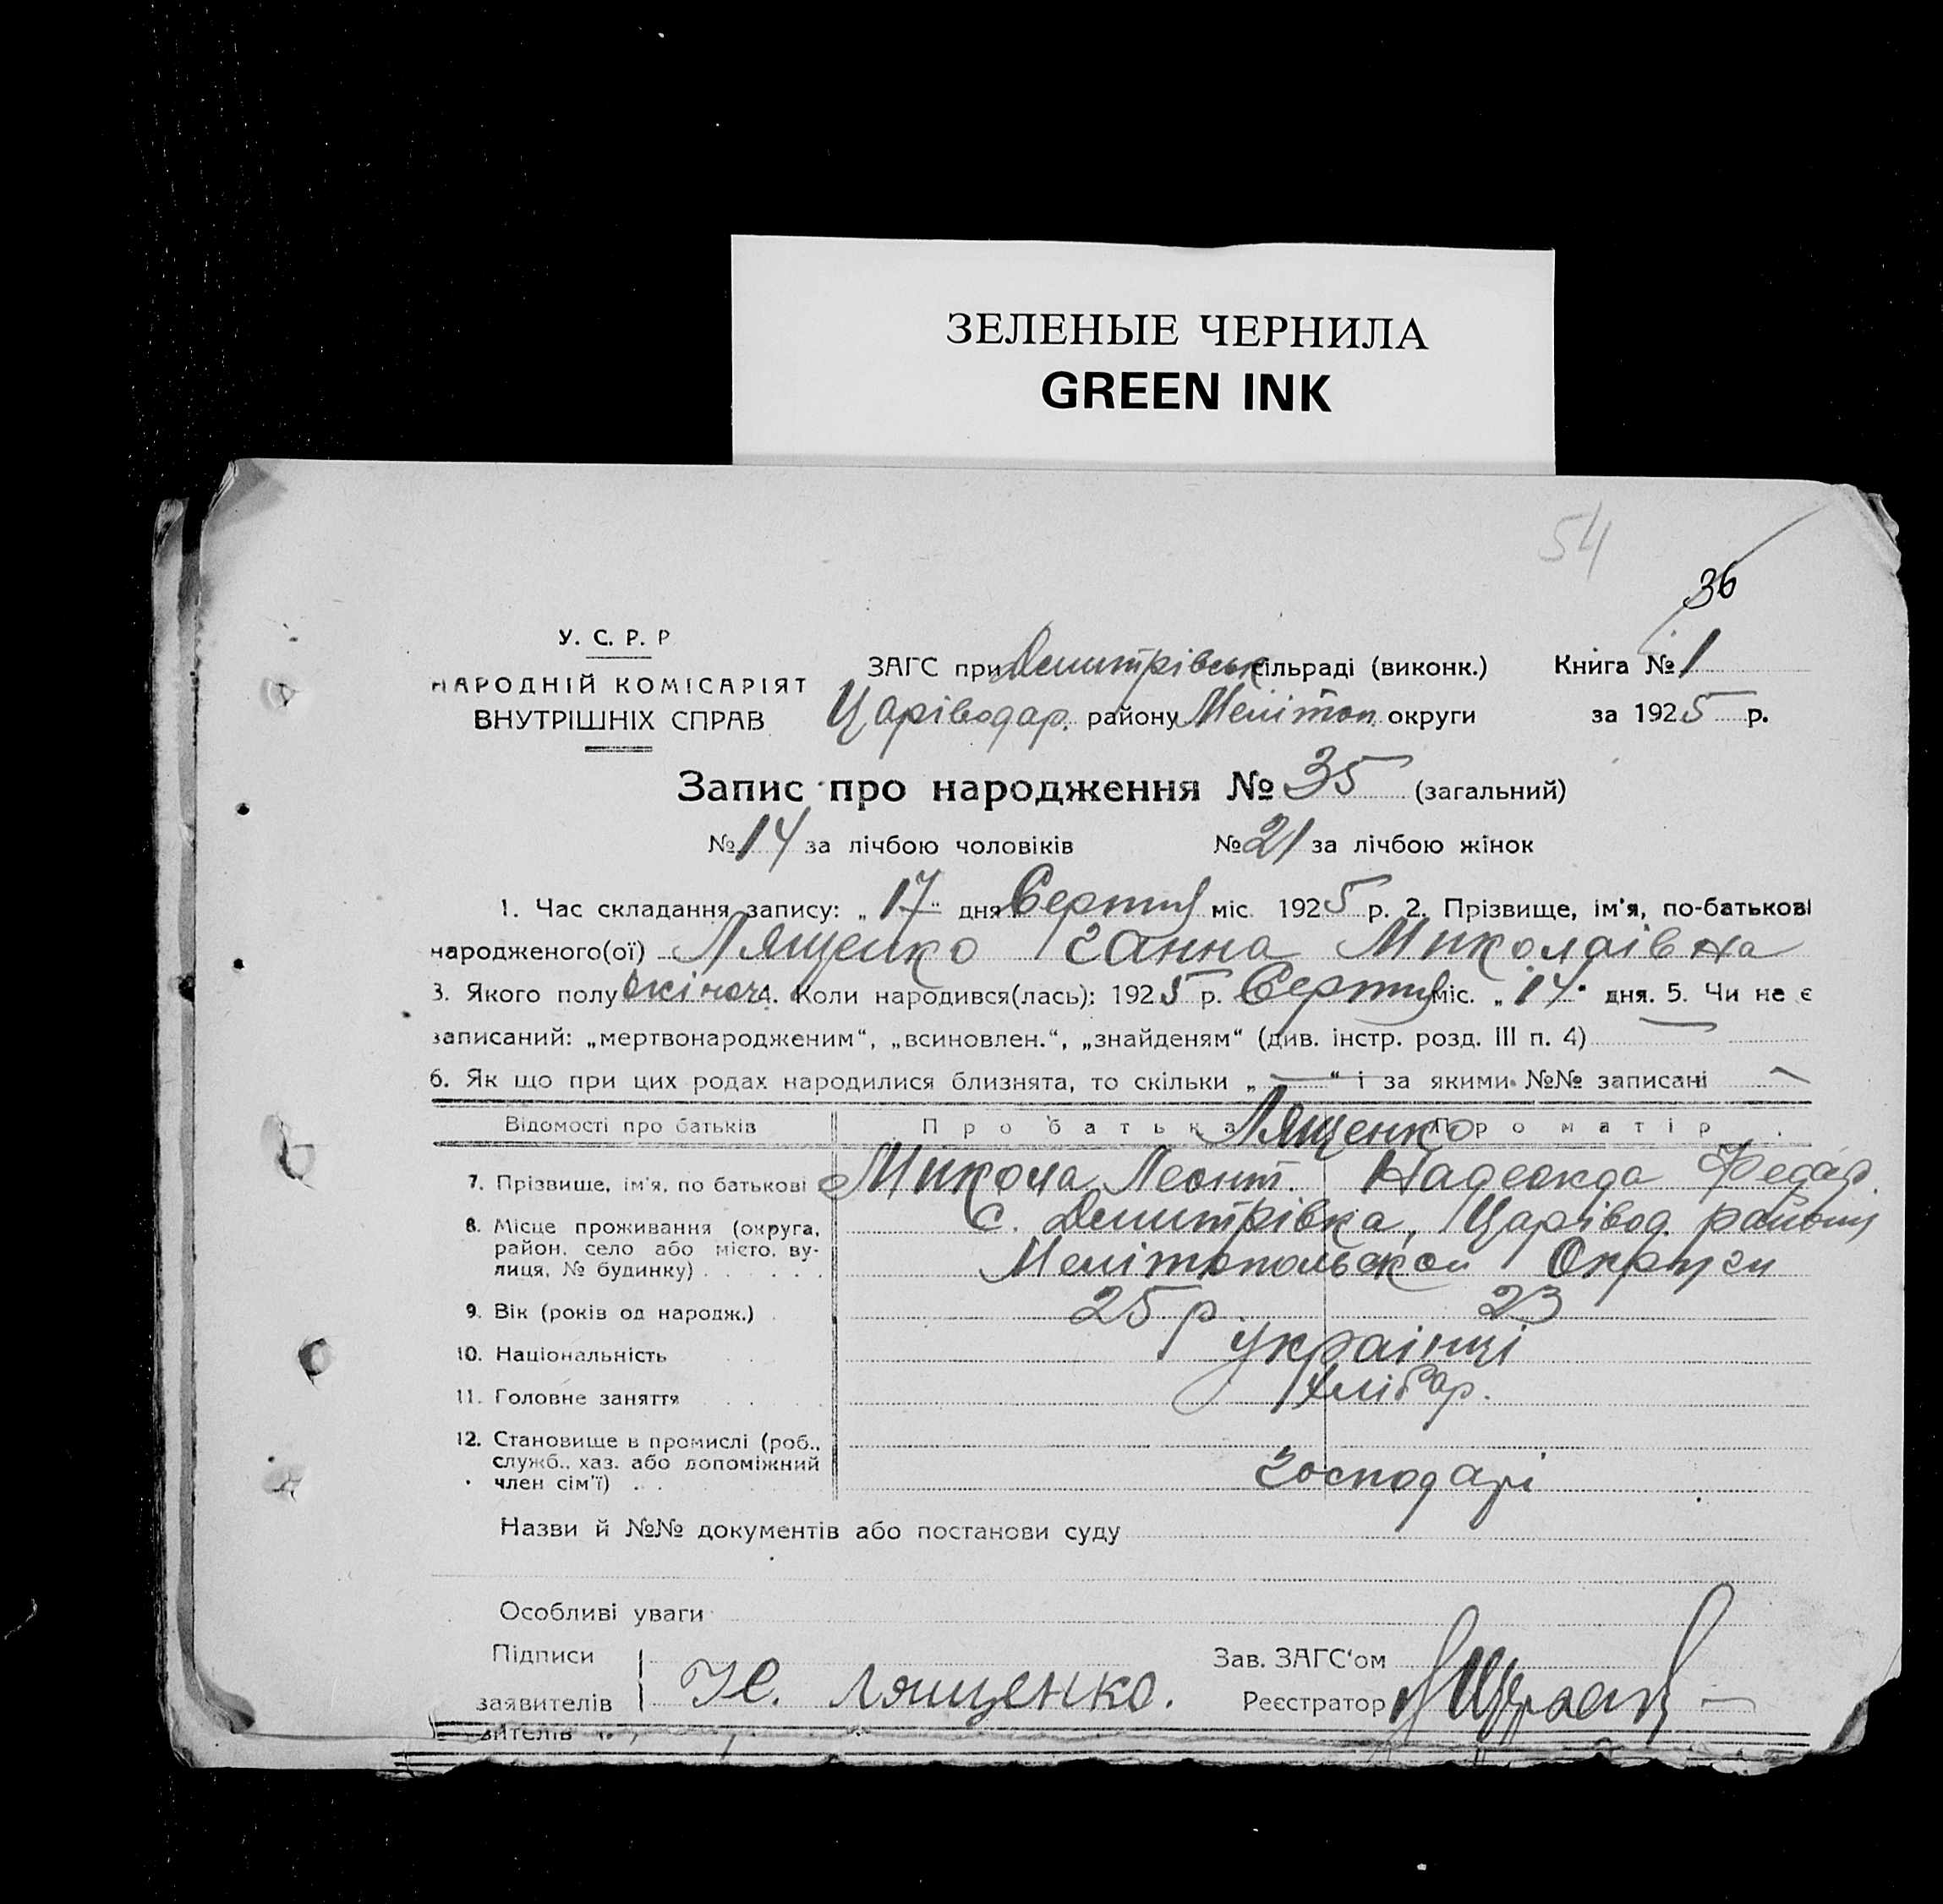 ЗЕЛЕНЫЕ ЧЕРНИЛА
GREEN INK
54
36
У. С. Р. Р
НАРОДНІЙ КОМІСАРІЯТ
ВНУТРІШНІХ СПРАВ
ЗАГС при Демитрівськ сільраді (виконк.) Книга № 1
Царіводар. району Мелітоп. округи за 1925 р.
Запис про народження № 35 (загальний)
№ 14 за лічбою чоловіків № 21 за лічбою жінок
1. Час складання запису: „17" дня Серпня міс. 1925 р. 2. Прізвище, ім'я, по-батькові
народженого(ої) Лященко Ганна Миколаівна
3. Якого полу жіноч. 4. Коли народився(лась): 1925 р. Серпня міс. „14" дня. 5. Чи не є
записаний: „мертвонародженим“, „всиновлен.“, „знайденям“ (див. інстр. розд. III п. 4) —
6. Як що при цих родах народилися близнята, то скільки „—“ і за якими №№ записані —
Відомості про батьків Про батька Про матір
Лященко
7. Прізвише, ім'я, по батькові Микола Леонт. Надежда Федор.
8. Місце проживання (округа, район, село або місто, вулиця, № будинку) с. Демитрівка, Царівод. району
Мелітопольской Округи
9. Вік (років од народж.) 25 р 23
10. Національність українці
11. Головне заняття Хлібар.
12. Становише в промислі (роб., служб., хаз. або допоміжний член сім'ї) господарі
Назви й №№ документів або постанови суду
Особливі уваги
Підписи заявителів Н. Лященко.
Зав. ЗАГС‘ом
Реєстратор
вителів